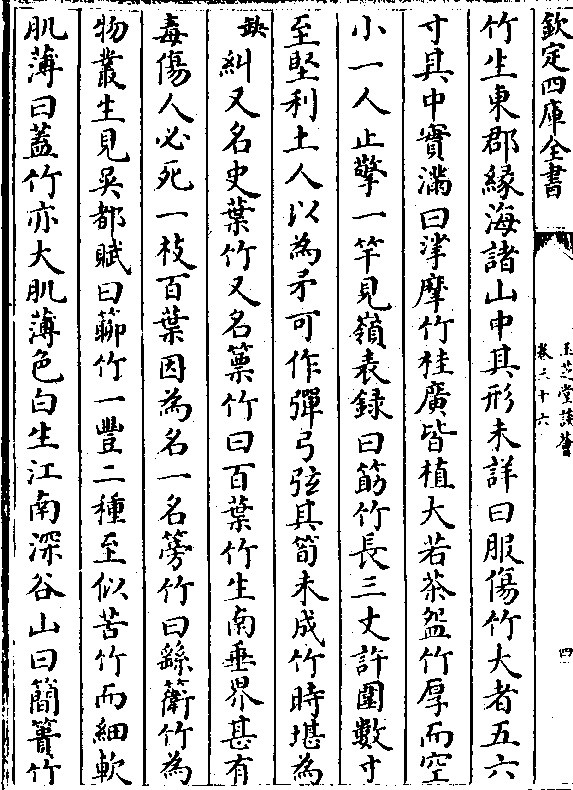 欽定四庫全書
玉芝堂談薈
卷三十六
四
竹生東郡緣海諸山中其形未詳曰服傷竹大者五六
寸其中實滿曰㧒摩竹桂廣皆植大若茶盌竹厚而空
小一人止擎一竿見嶺表録曰筋竹長三丈許圍數寸
至堅利土人以為矛可作彈弓弦其筍未成竹時堪為
缺糾又名史葉竹又名篻竹曰百葉竹生南垂界甚有
毒傷人必死一枝百葉因為名一名䈍竹曰䌛䕔竹為
物叢生見吳都賦曰䈁竹一豐二種至似苦竹而細軟
肌薄曰蓋竹亦大肌薄色白生江南深谷山曰簡簀竹